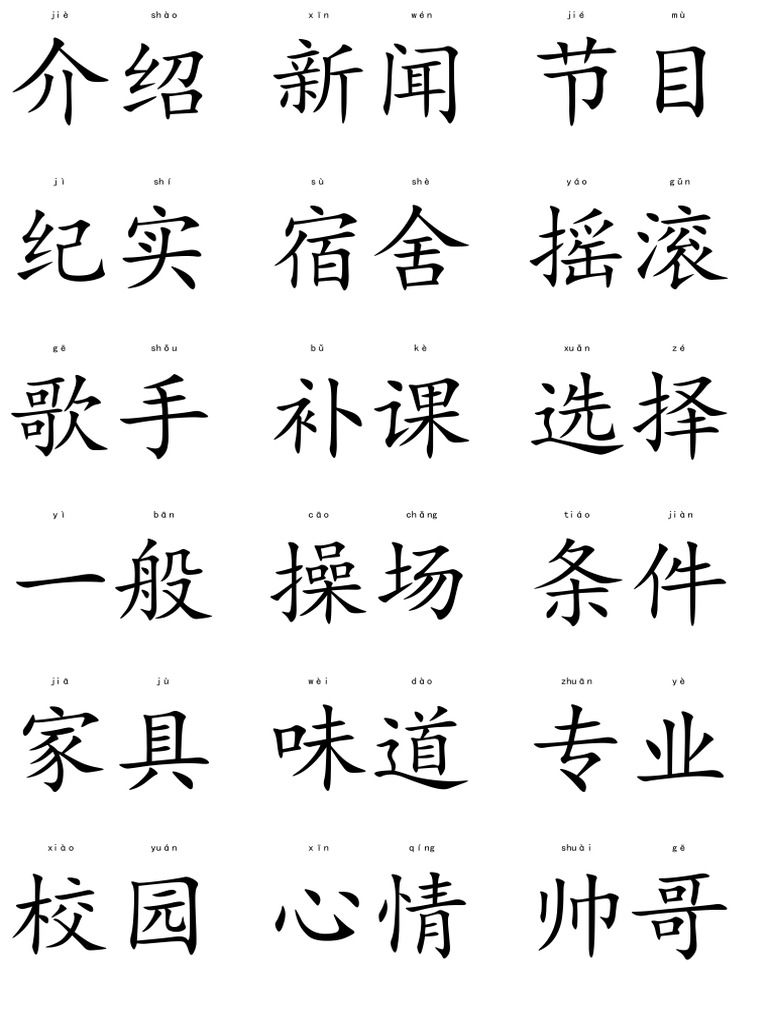 jiè shào xīn wén jié mù
介绍 新闻 节目
jì shí sù shè yáo gǔn
纪实 宿舍 摇滚
gē shǒu bǔ kè xuǎn zé
歌手 补课 选择
yì bān cāo chǎng tiáo jiàn
一般 操场 条件
jiā jù wèi dào zhuān yè
家具 味道 专业
xiào yuán xīn qíng shuài gē
校园 心情 帅哥